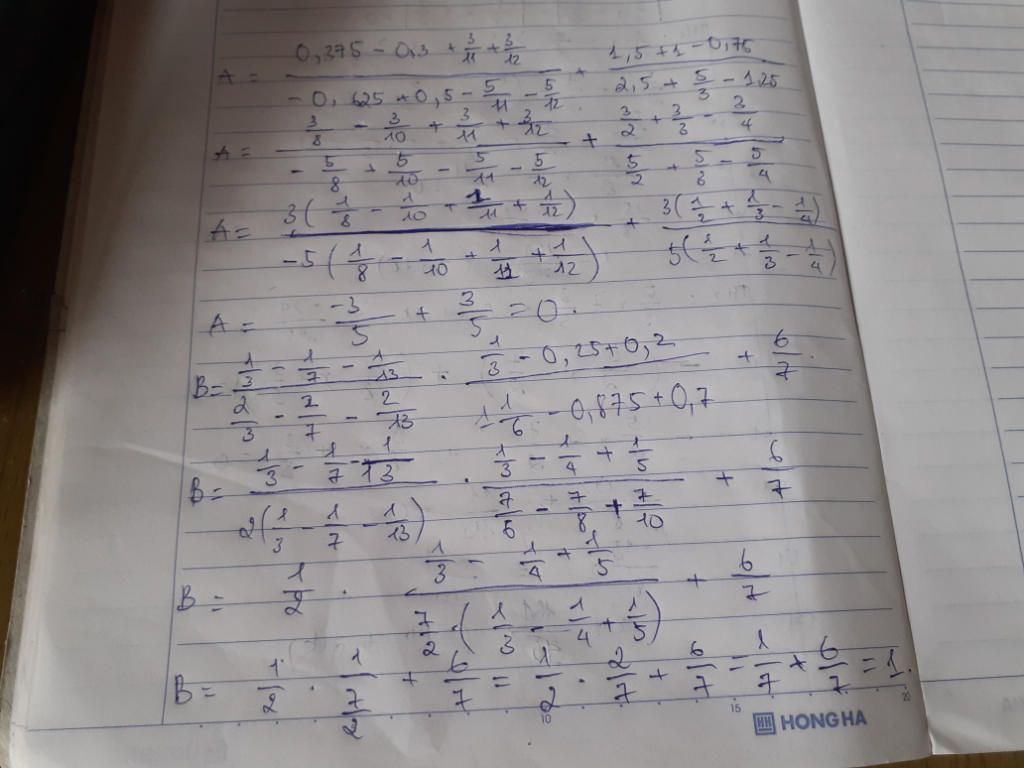 A = (0,375 - 0,3 + 3/11 + 3/12)/(-0,625 + 0,5 - 5/11 - 5/12) + (1,5 + 1 - 0,75)/(2,5 + 5/3 - 1,25)
A = (3/8 - 3/10 + 3/11 + 3/12)/(-5/8 + 5/10 - 5/11 - 5/12) + (3/2 + 3/3 - 3/4)/(5/2 + 5/3 - 5/4)
A = 3(1/8 - 1/10 + 1/11 + 1/12)/-5(1/8 - 1/10 + 1/11 + 1/12) + 3(1/2 + 1/3 - 1/4)/5(1/2 + 1/3 - 1/4)
A = -3/5 + 3/5 = 0.
B = (1/3 - 1/7 - 1/13)/(2/3 - 2/7 - 2/13) . (1/3 - 0,25 + 0,2)/(1 1/6 - 0,875 + 0,7) + 6/7.
B = (1/3 - 1/7 - 1/13)/2(1/3 - 1/7 - 1/13) . (1/3 - 1/4 + 1/5)/(7/6 - 7/8 + 7/10) + 6/7
B = 1/2 . (1/3 - 1/4 + 1/5)/(7/2 . (1/3 - 1/4 + 1/5)) + 6/7
B = 1/2 . 1/(7/2) + 6/7 = 1/2 . 2/7 + 6/7 = 1/7 + 6/7 = 1.
10 15 20
HH HONG HA